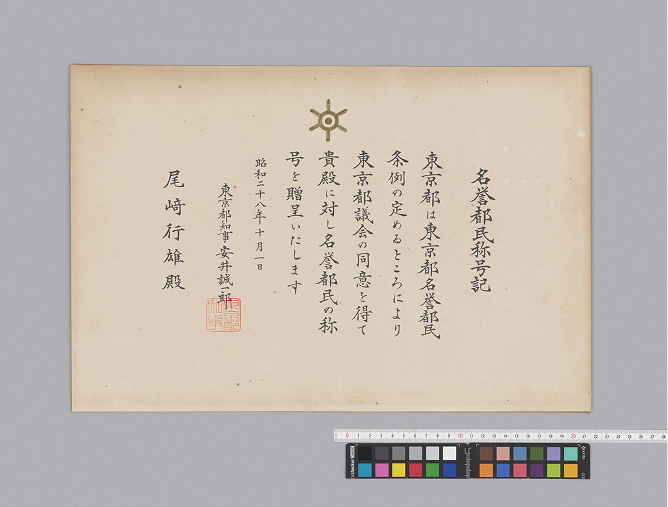 名誉都民称号記
東京都は東京都名誉都民
条例の定めるところにより
東京都議会の同意を得て
貴殿に対し名誉都民の称
号を贈呈いたします
昭和二十八年十月一日
東京都知事安井誠一郎
尾崎行雄殿